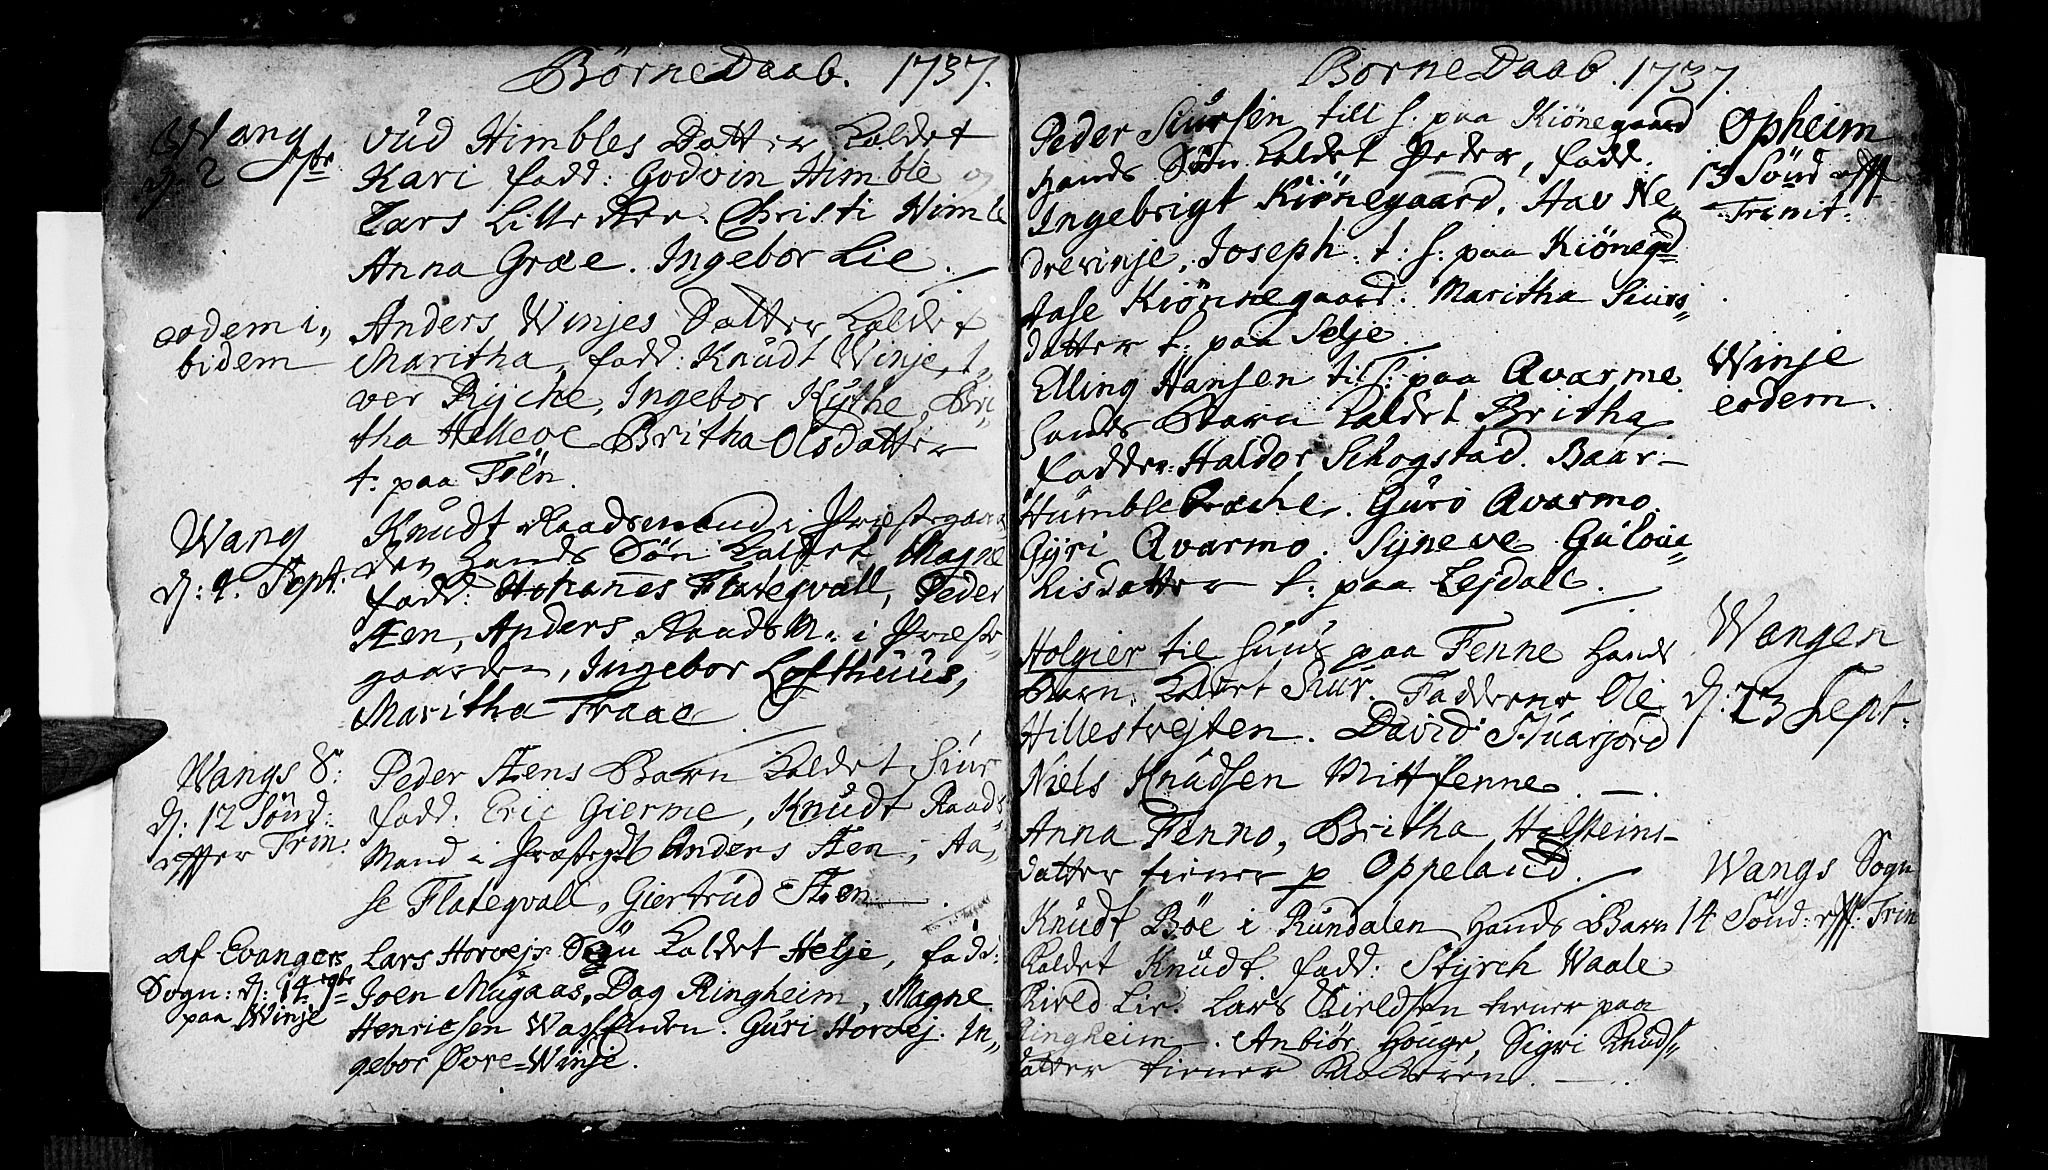 Börne Daab. 1737.
Wang
d: 2 7br
Vüd Himbles Datter kaldet
Kari fadd: Godvin Himble og
Lars Lille Christi Himle
Anna Græe. Ingebor Lie.
eodem i„
bidem
Anders Winjes Datter kaldet
Maritha, fadd: Knüdt Winje, I„
ver Rÿche, Ingebor Kÿthe, Bri„
tha Helleve Britha Olsdatter
t: paa Töen.
Wang
d: 9. Sept:
Knüdt Raadsmand i Præstegaar„
den hands Sön kaldet Magne
fadd: Hohanes Flategvall, Peder
Æen, Anders Raads M: i Præste„
gaarden, Ingebor Lofthüüs,
Maritha Traae
Wangs S:
d: 12 Sönd:
effter Trin:
Peder Æens Barn kaldet Siur
fadd: Eric Gierme, Knüdt Raads„
Mand i Præstegd Anders Æen, Aa„
se Flategvall, Giertrüd Æen.
af Evanger
Sogn: d: 14 7br
paa Winje
Lars Horvejs Sön kaldet Helje, fadd:
Joen Mügaas, Dag Ringheim, Magne
Henricsen Wasfenden. Güri Horvej. In„
gebor Øvre=Winje.
Börne Daab. 1737.
Opheim
13 Sönd eff
Trinit:
Peder Siursen till h: paa Kiönegaard
hands Sön kaldet Peder, fadd:
Ingebrigt Kiönegaard, Hav Ne„
drevinje, Joseph t: h: paa Kiönegd
Aase Kiönnegaard: Maritha Siurs„
datter t: paa Selje.
Winje
eodem.
Elling Hansen til h: paa Avarme
hands Barn kaldet Britha
fadder: Haldor Schogstad. Baar
Hümble Güro Avarmo.
Gÿri Avarmo. Sÿneve Gülou„
chisdatter t: paa Lejdall.
Wangen
d: 23 Sept:
Holgier til hüüs paa Fenne hands
Barn kaldet Siür. Fadderne Ole
Hillestvejten. David Skiarjord
Niels Knüdsen Mittfenne.
Anna Fenno, Britha Holsteins
datter tiener p Oppeland.
Wangs Sogn
14 Sönd: eff: Trin
Knüdt Böe i Rundalen hands Barn
kaldet Knüdt. fadd: Stÿrch Waale
Lie. Lars tiener paa
Ringheim. Anbiör Houge, Sigri Knüds„
datter tiener